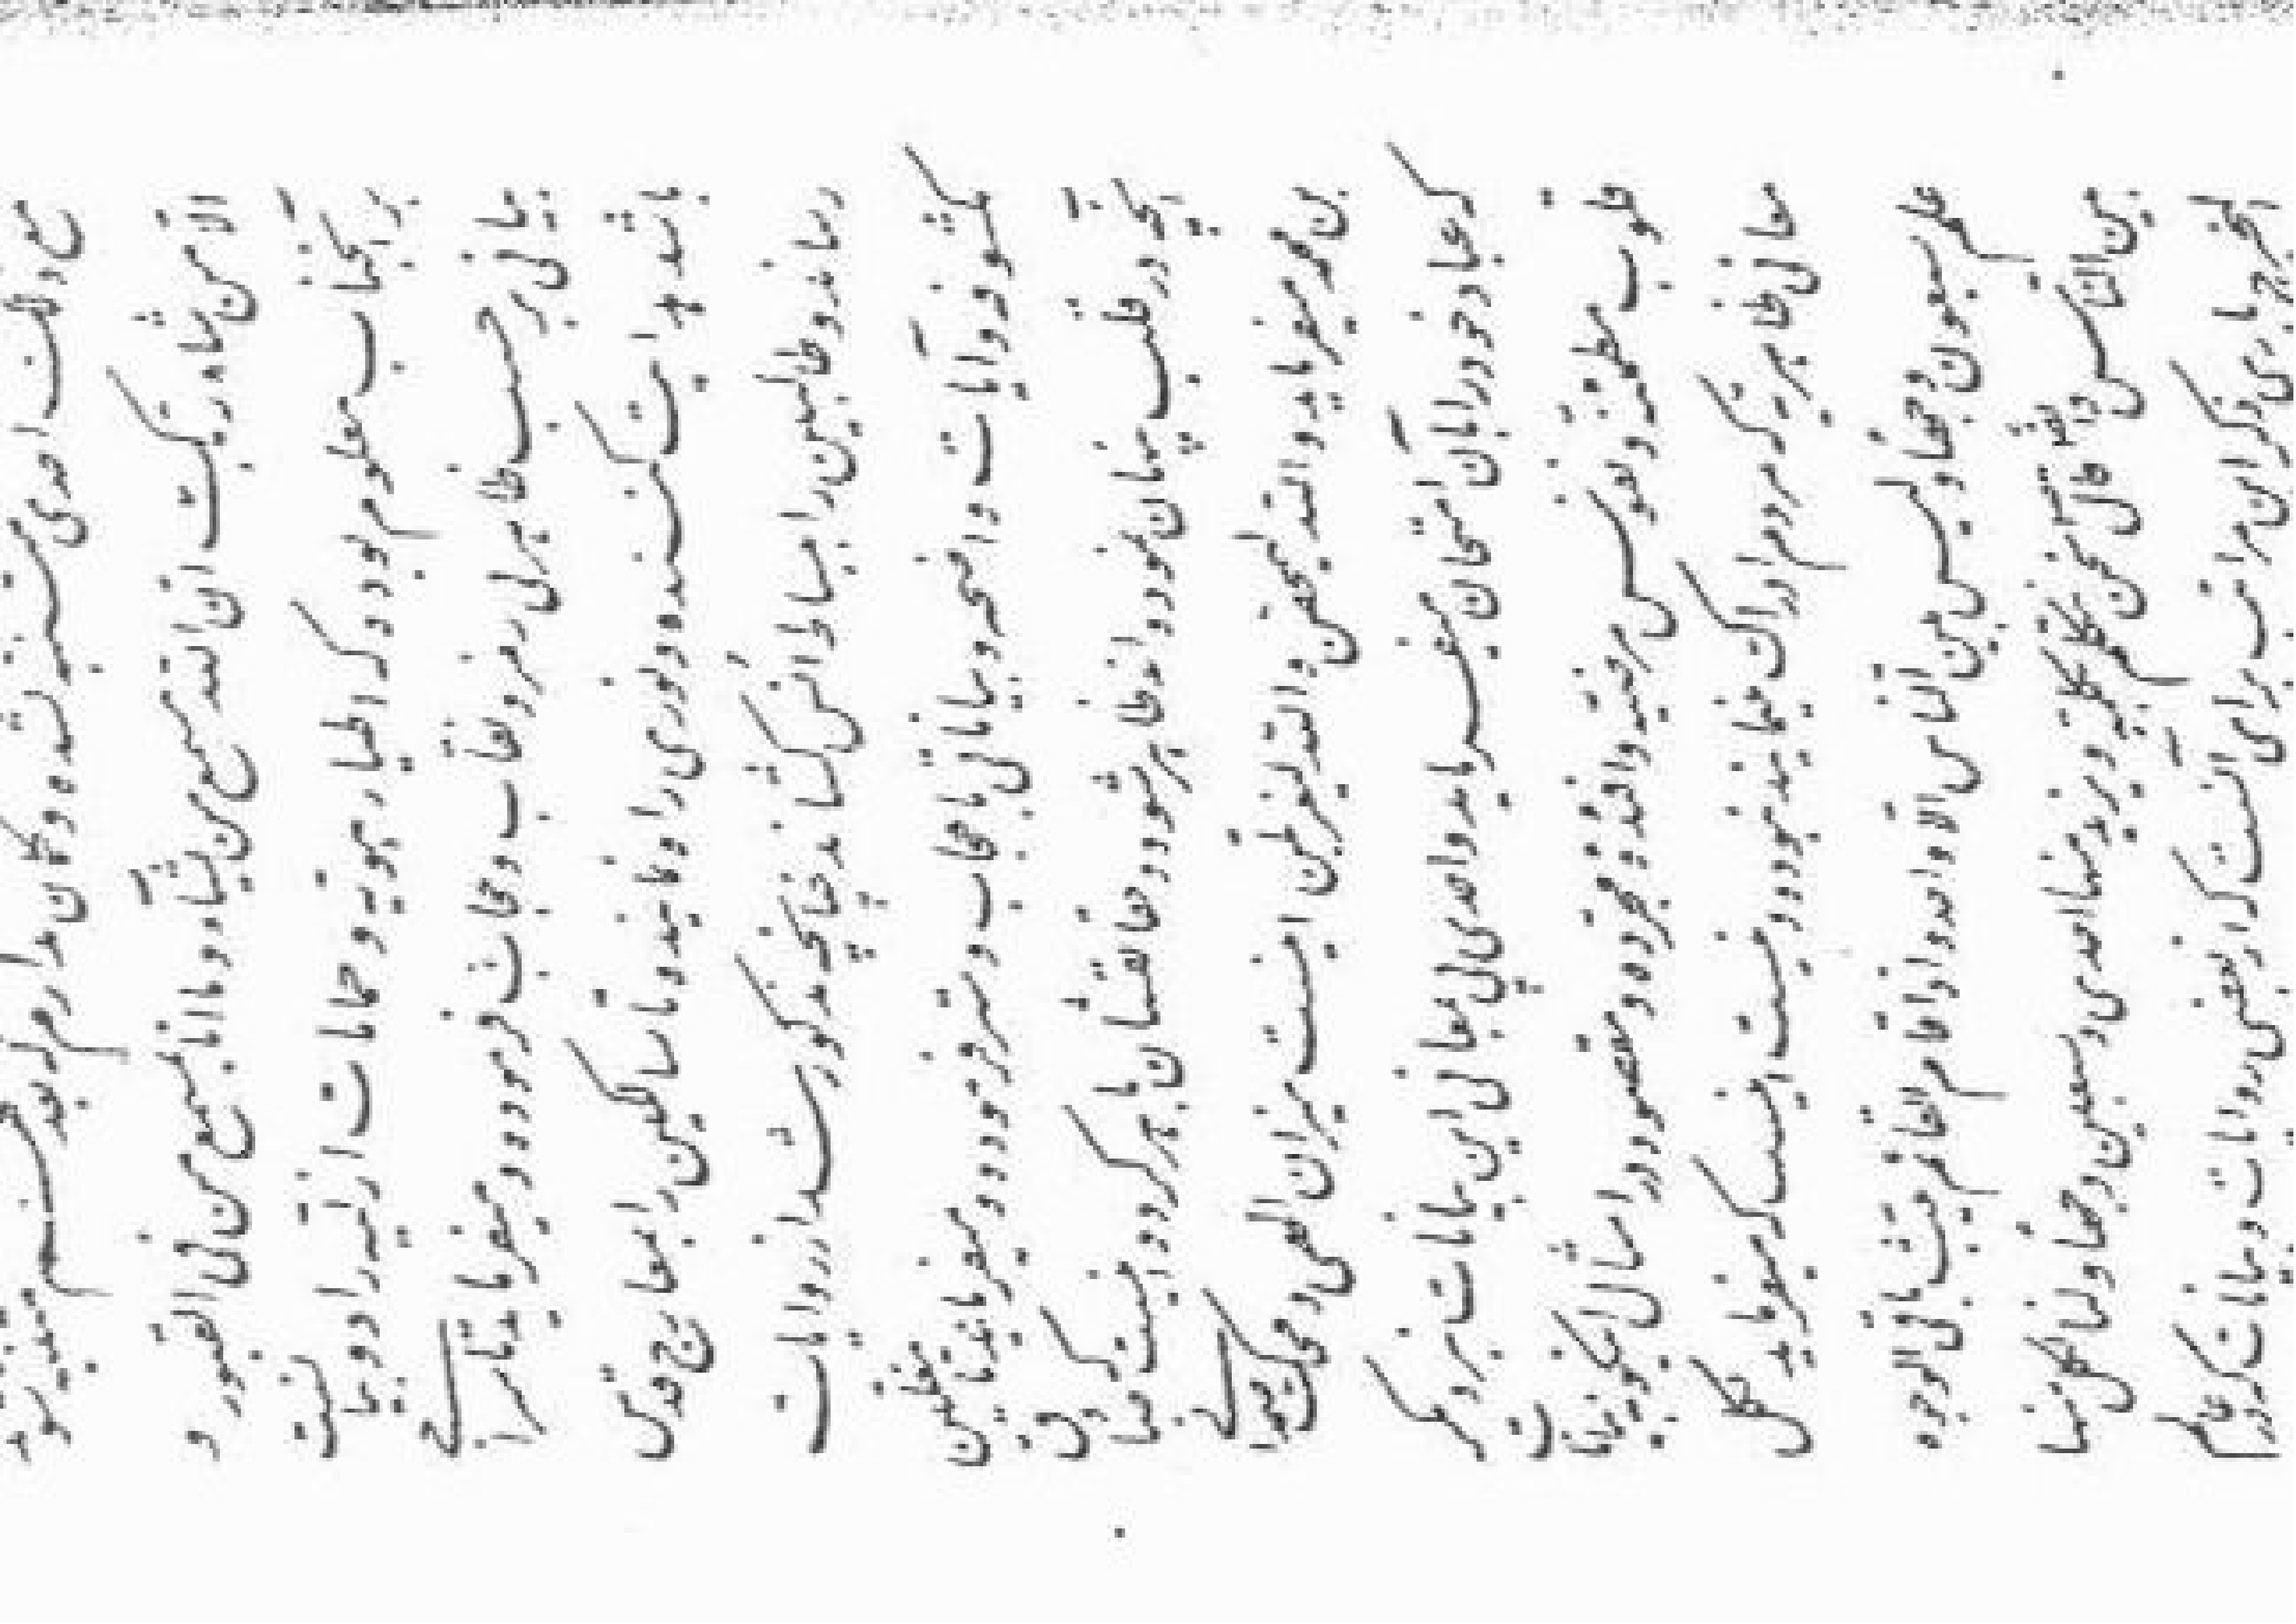 مع ذلک احدی مستشعر نشده و گمان ندارم که بعد هم متنبه شوند
الا من شاء ربک ان الله مسمع من یشآء و ما انا بمسمع من فی القبور و
بر آنجناب معلوم بوده که اطیار هویه و حمامات ازلیه را دو بیانست
بیانی بر حسب ظاهر بی رمز و نقاب و حجاب فرموده و میفرمایند تا سراجی
باشد هدایت کننده و نوری راه نماینده تا سالکین را بمعارج قدس
رساند و طالبین را ببساط انس کشاند چنانچه مذکور شد از روایات
مکشوفه و آیات واضحه و بیاناتی با حجاب و ستر فرموده و میفرمایند تا مغلین
آنچه در قلب پنهان نموده‌اند ظاهر شود و حقایقشان باهر گردد اینست که صادق
بن محمد میفرماید والله لیمحصن والله لیغربلن اینست میزان الهی و محک صمدانی
که عباد خود را بآن امتحان میفرماید و احدی پی بمعانی این بیانات نبرد مگر
قلوب مطمئنه و نفوس مرضیه و افئده مجرده و مقصود در امثال اینگونه بیانات
معانی ظاهریه که مردم ادراک مینمایند نبوده و نیست اینست که میفرماید لکل
علم سبعون وجها و لیس بین الناس الا واحد و اذا قام القائم یبث باقی الوجوه
بین الناس و ایضا قال نحن نتکلم بکلمة و نرید منها احدی و سبعین وجها و لنا لکل منها
المخرج باری ذکر این مراتب برای آنست که از بعضی روایات و بیانات که در عالم